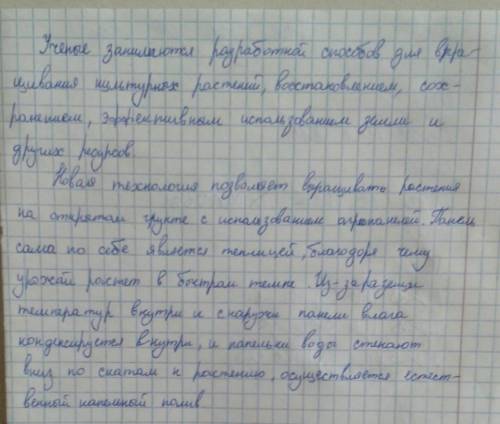 Ученые занимаются разработкой способов для выра-
щивания культурных растений, восстановлением, сох-
ранением, эффективным использованием земли и
других ресурсов.
Новая технология позволяет выращивать растения
на открытом грунте с использованием агропанелей. Панель
сама по себе является теплицей, благодаря чему
урожай растет в быстром темпе. Из-за разницы
температур внутри и снаружи панели влага
конденсируется внутри, и капельки воды стекают
вниз по скатам к растению, осуществляется естест-
венный капельный полив